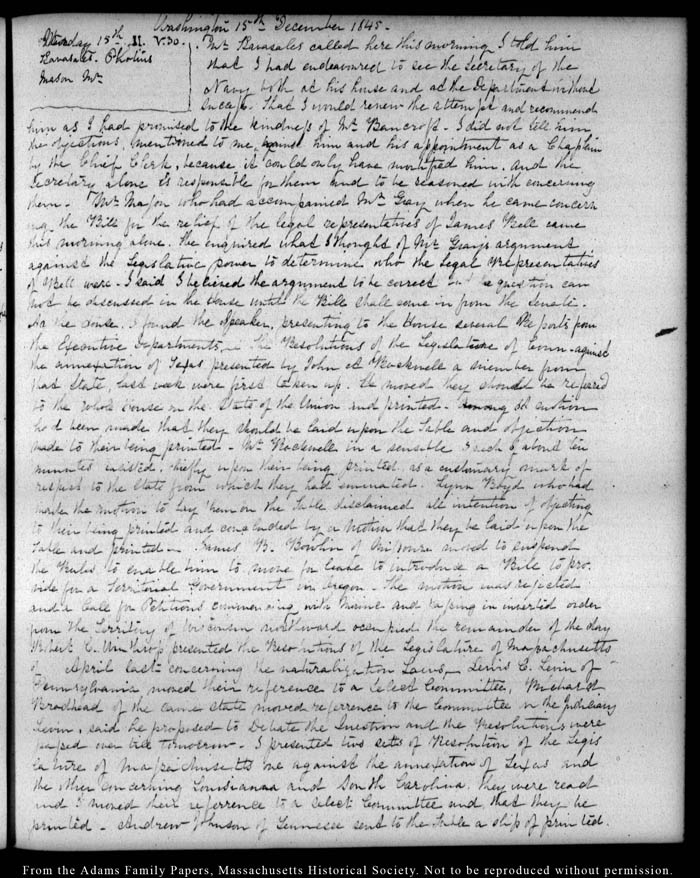 Washington 15th December 1845.
Monday 15th. II. V.30.
Kavasales. Photius
Mason Mr
Mr Kavasales called here this morning I told him
that I had endeavoured to see the Secretary of the
Navy both at his house and at the Department without
success. That I would renew the attempt and recommend
him as I had promised to the kindness of Mr Bancroft. I did not tell him
the objections, mentioned to me, against him and his appointment as a Chaplain
by the Chief Clerk, because it could only have mortified him. And the
Secretary alone is responsible for them and to be reasoned with concerning
them. Mr Mason who had accompanied Mr Gray when he came concern
ing the Bill for the relief of the legal representatives of James Bell came
this morning alone. He enquired what I thought of Mr Grays argument
against the Legislative power to determine who the Legal representatives
of Bell were. I said I believed the argument to be correct but the question can
not be discussed in the House until the Bill shall come in from the Senate.
At the House. I found the Speaker, presenting to the House several Reports from
the Executive Departments. The Resolutions of the Legislature of Conn. against
the annexation of Texas presented by John A Rockwell a member from
that State last week were first taken up. He moved they should be referred
to the whole House on the State of the Union and printed. A motion
had been made that they should be laid upon the Table and objection
made to their being printed. Mr Rockwell in a sensible Speech of about ten
minutes insisted, chiefly upon their being printed, as a customary mark of
respect to the State from which they had emanated. Lynn Boyd who had
made the motion to lay them on the Table disclaimed all intention of objecting
to their being printed and concluded by a Motion that they be laid upon the
Table and printed. James B. Bowlin of Missouri moved to suspend
the Rules to enable him to move for leave to introduce a Bill to pro
vide for a Territorial Government in Oregon. The motion was rejected
and a Call for Petitions commencing with Maine and passing in inverted order
from the Territory of Wisconsin northward occupied the remainder of the day
Robert C. Winthrop presented the Resolutions of the Legislature of Massachusetts
of April last concerning the naturalization Laws, Lewis C. Levin of
Pennsylvania moved their reference to a Select Committee, Richard
Brodhead of the same State moved reference to the Committee on the Judiciary
Levin, said he proposed to Debate the Question and the Resolutions were
passed over till tomorrow. I presented two setts of Resolution of the Legis
lature of Massachusetts one against the annexation of Texas and
the other concerning Louisianaa and South Carolina. They were read
and I moved their referrence to a select Committee and that they be
printed. Andrew Johnson of Tennesee sent to the Table a slip of printed.
From the Adams Family Papers, Massachusetts Historical Society. Not to be reproduced without permission.